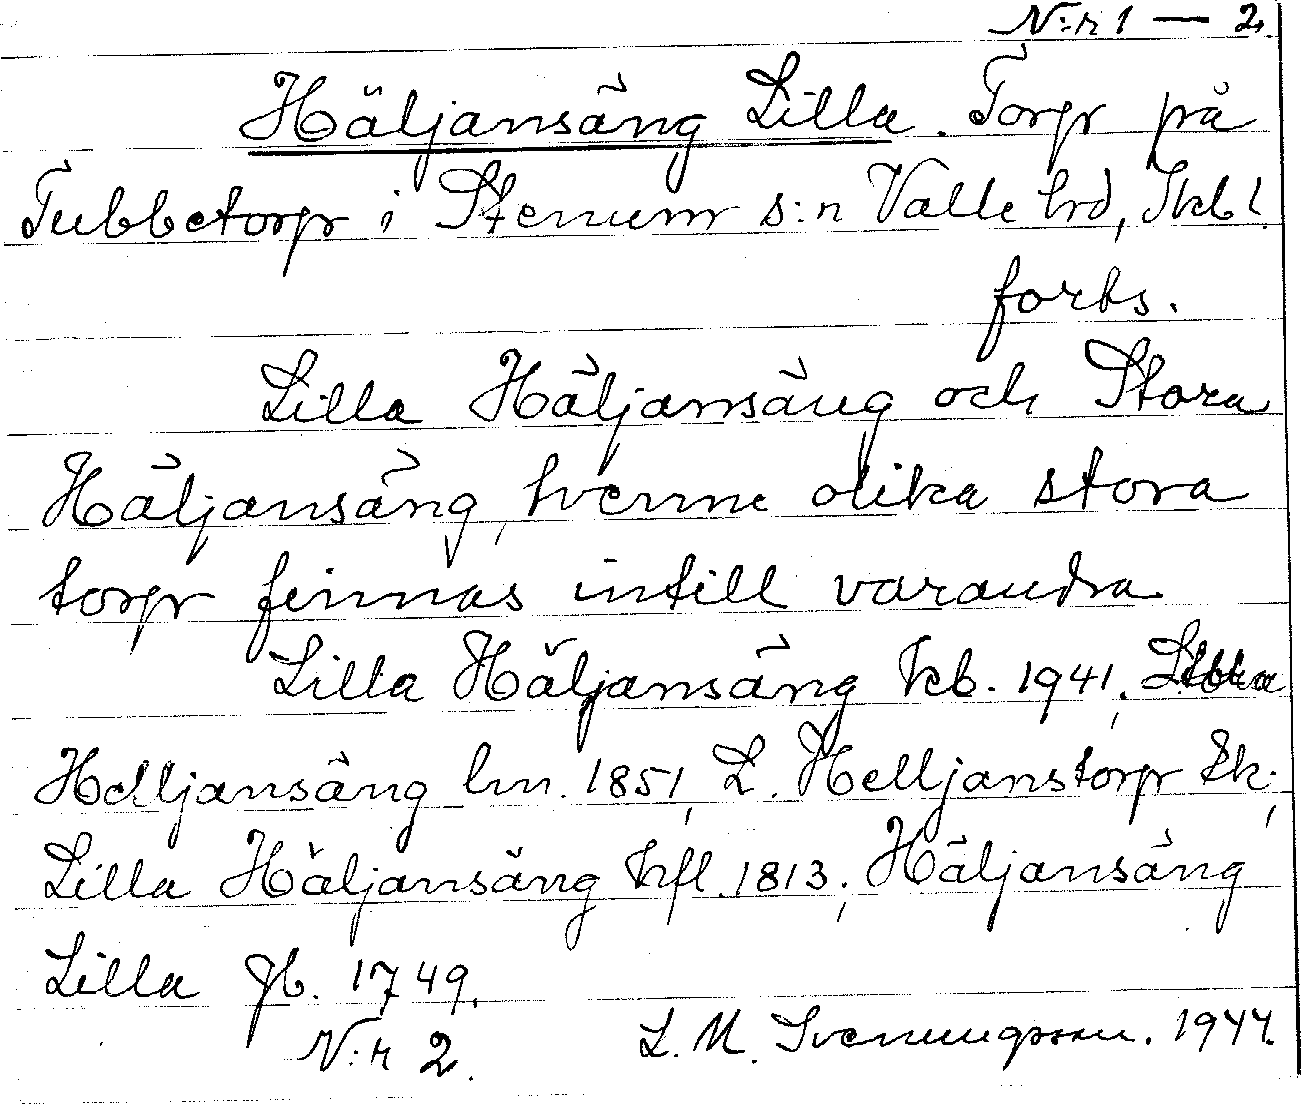 N:r 1 — 2.
Häljansäng Lilla. Torp på
Tubbetorp i Stenum s:n Valle hrd, Skbl.
forts.
Lilla Häljansäng och Stora
Häljansäng, tvenne olika stora
torp finnas intill varandra
Lilla Häljansäng kb. 1941,
Helljansäng hm. 1851, L. Helljanstorp Ek;
Lilla Häljansäng hfl. 1813; Häljansäng
Lilla Jb. 1749.
N:r 2. L. M. Svenungsson. 1944.